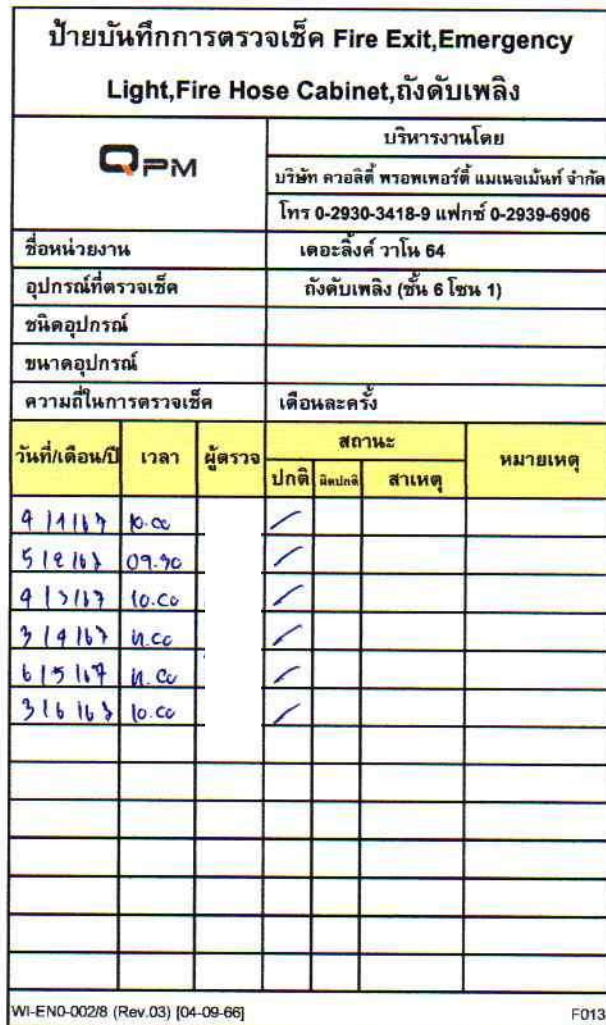 ป้ายบันทึกการตรวจเช็ค Fire Exit,Emergency
Light,Fire Hose Cabinet,ถังดับเพลิง
QPM
บริหารงานโดย
บริษัท ควอลิตี้ พรอพเพอร์ตี้ แมเนจเม้นท์ จำกัด
โทร 0-2930-3418-9 แฟกซ์ 0-2939-6906
ชื่อหน่วยงาน เดอะลิ้งค์ วาโน 64
อุปกรณ์ที่ตรวจเช็ค ถังดับเพลิง (ชั้น 6 โซน 1)
ชนิดอุปกรณ์
ขนาดอุปกรณ์
ความถี่ในการตรวจเช็ค เดือนละครั้ง
วันที่/เดือน/ปี เวลา ผู้ตรวจ สถานะ หมายเหตุ
ปกติ ผิดปกติ สาเหตุ
4/1/67 10.00
5/2/67 09.30
4/3/67 10.00
3/4/67 11.00
6/5/67 11.00
3/6/67 10.00
WI-EN0-002/8 (Rev.03) [04-09-66] F013